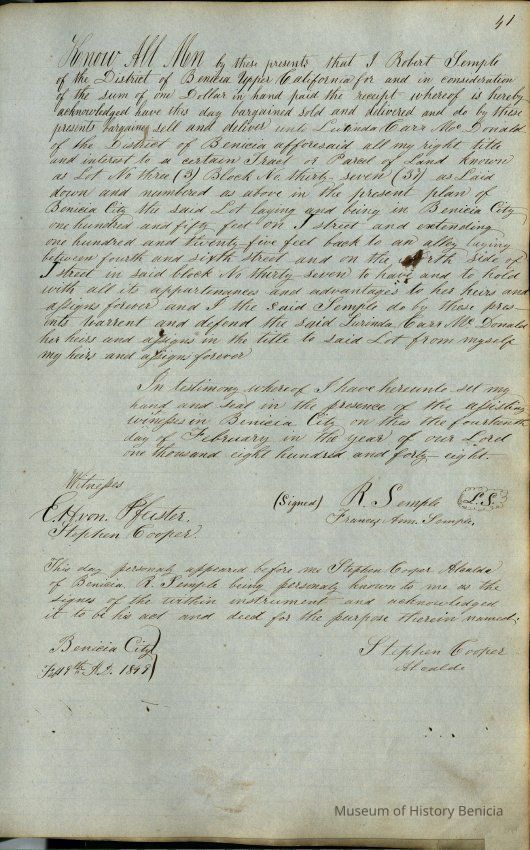 41
Know All Men by these presents that I Robert Semple
of the District of Benicia Upper California for and in consideration
of the sum of one Dollar in hand paid the receipt whereof is hereby
acknowledged have this day bargained sold and delivered and do by these
presents bargain sell and deliver unto Lurinda Carr McDonald
of the District of Benicia afforesaid all my right title
and interest to a certain Tract or Parcel of Land known
as Lot No three (3) Block No thirty-seven (37) as Laid
down and numbered as above in the present plan of
Benicia City the said Lot laying and being in Benicia City
one hundred and fifty feet on J street and extending
one hundred and twenty-five feet back to an alley laying
between fourth and sixth street and on the North side of
J street in said block No thirty-seven to have and to hold
with all its appertenances and advantages to her heirs and
assigns forever and I the said Semple do by these pres-
ents warrent and defend the said Lurinda Carr McDonald
her heirs and assigns in the title to said Lot from myself
my heirs and assigns forever
In testimony whereof I have hereunto set my
hand and seal in the presence of the assisting
witness in Benicia City on this the fourteenth
day of February in the year of our Lord
one thousand eight hundred and forty-eight-
Witnesses
(Signed) R. Semple (L.S.)
E. H. von Pfister.
Francis Ann. Semple,
Stephen Cooper.
This day personaly appeared before me Stephen Cooper Alcalde
of Benicia R. Semple being personaly known to me as the
signer of the within instrument and acknowledged
it to be his act and deed for the purpose therein named;
Benicia City
Stephen Cooper
A.D. 1849
Alcalde
Museum of History Benicia